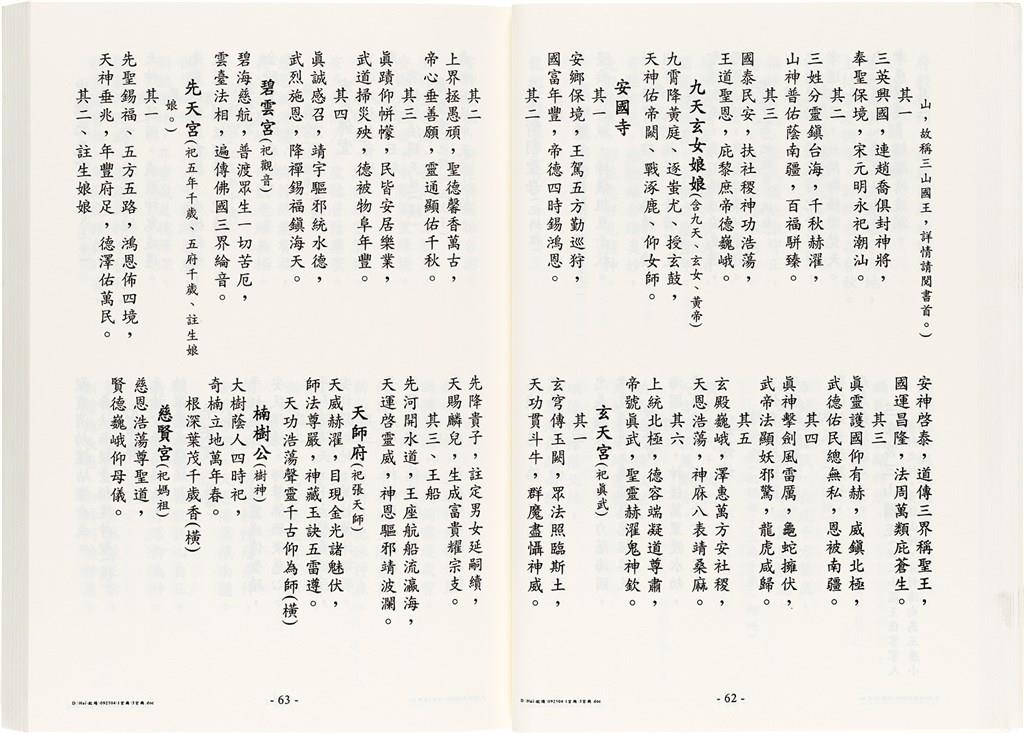 山，故稱三山國王，詳情請閱書首。)
其一
三英興國，連趙喬俱封神將，
奉聖保境，宋元明永祀潮汕。
其二
三姓分靈鎮台海，千秋赫濯，
山神普佑蔭南疆，百福駢臻。
其三
國泰民安，扶社稷神功浩蕩，
王道聖恩，庇黎庶帝德巍峨。
九天玄女娘娘(含九天、玄女、黃帝)
九霄降黃庭、逐蚩尤、授玄鼓，
天神佑帝闕、戰涿鹿、仰女師。
安國寺
其一
安鄉保境，王駕五方勤巡狩，
國富年豐，帝德四時錫鴻恩。
其二
安神啓泰，道傳三界稱聖王，
國運昌隆，法周萬類庇蒼生。
其三
眞靈護國仰有赫，威鎮北極，
武德佑民總無私，恩被南疆。
其四
眞神擊劍風雷厲，龜蛇擁伏，
武帝法顯妖邪驚，龍虎咸歸。
其五
玄殿巍峨，澤惠萬方安社稷，
天恩浩蕩，神庥八表靖桑麻。
其六
上統北極，德容端凝道尊肅，
帝號眞武，聖靈赫濯鬼神欽。
玄天宮(祀眞武)
其一
玄穹傳玉闕，眾法照臨斯土，
天功貫斗牛，群魔盡懾神威。
- 62 -
其二
上界拯愚頑，聖德馨香萬古，
帝心垂善願，靈通顯佑千秋。
其三
眞蹟仰帡幪，民皆安居樂業，
武道掃災殃，德被物阜年豐。
其四
眞誠感召，靖宇驅邪統水德，
武烈施恩，降禪錫福鎮海天。
碧雲宮(祀觀音)
碧海慈航，普渡眾生一切苦厄，
雲臺法相，遍傳佛國三界綸音。
先天宮(祀五年千歲、五府千歲、註生娘
娘。)
其一
先聖錫福、五方五路，鴻恩佈四境，
天神垂兆，年豐府足，德澤佑萬民。
其二、註生娘娘
先降貴子，註定男女延嗣續，
天賜麟兒，生成富貴耀宗支。
其三、王船
先河開水道，王座航船流瀛海，
天運啓靈威，神恩驅邪靖波瀾。
天師府(祀張天師)
天威赫濯，目現金光諸魅伏，
師法尊嚴，神藏玉訣五雷遵。
天功浩蕩聲靈千古仰為師(橫)
楠樹公(樹神)
大樹蔭人四時祀，
奇楠立地萬年春。
根深葉茂千歲香(橫)
慈賢宮(祀媽祖)
慈恩浩蕩尊聖道，
賢德巍峨仰母儀。
- 63 -